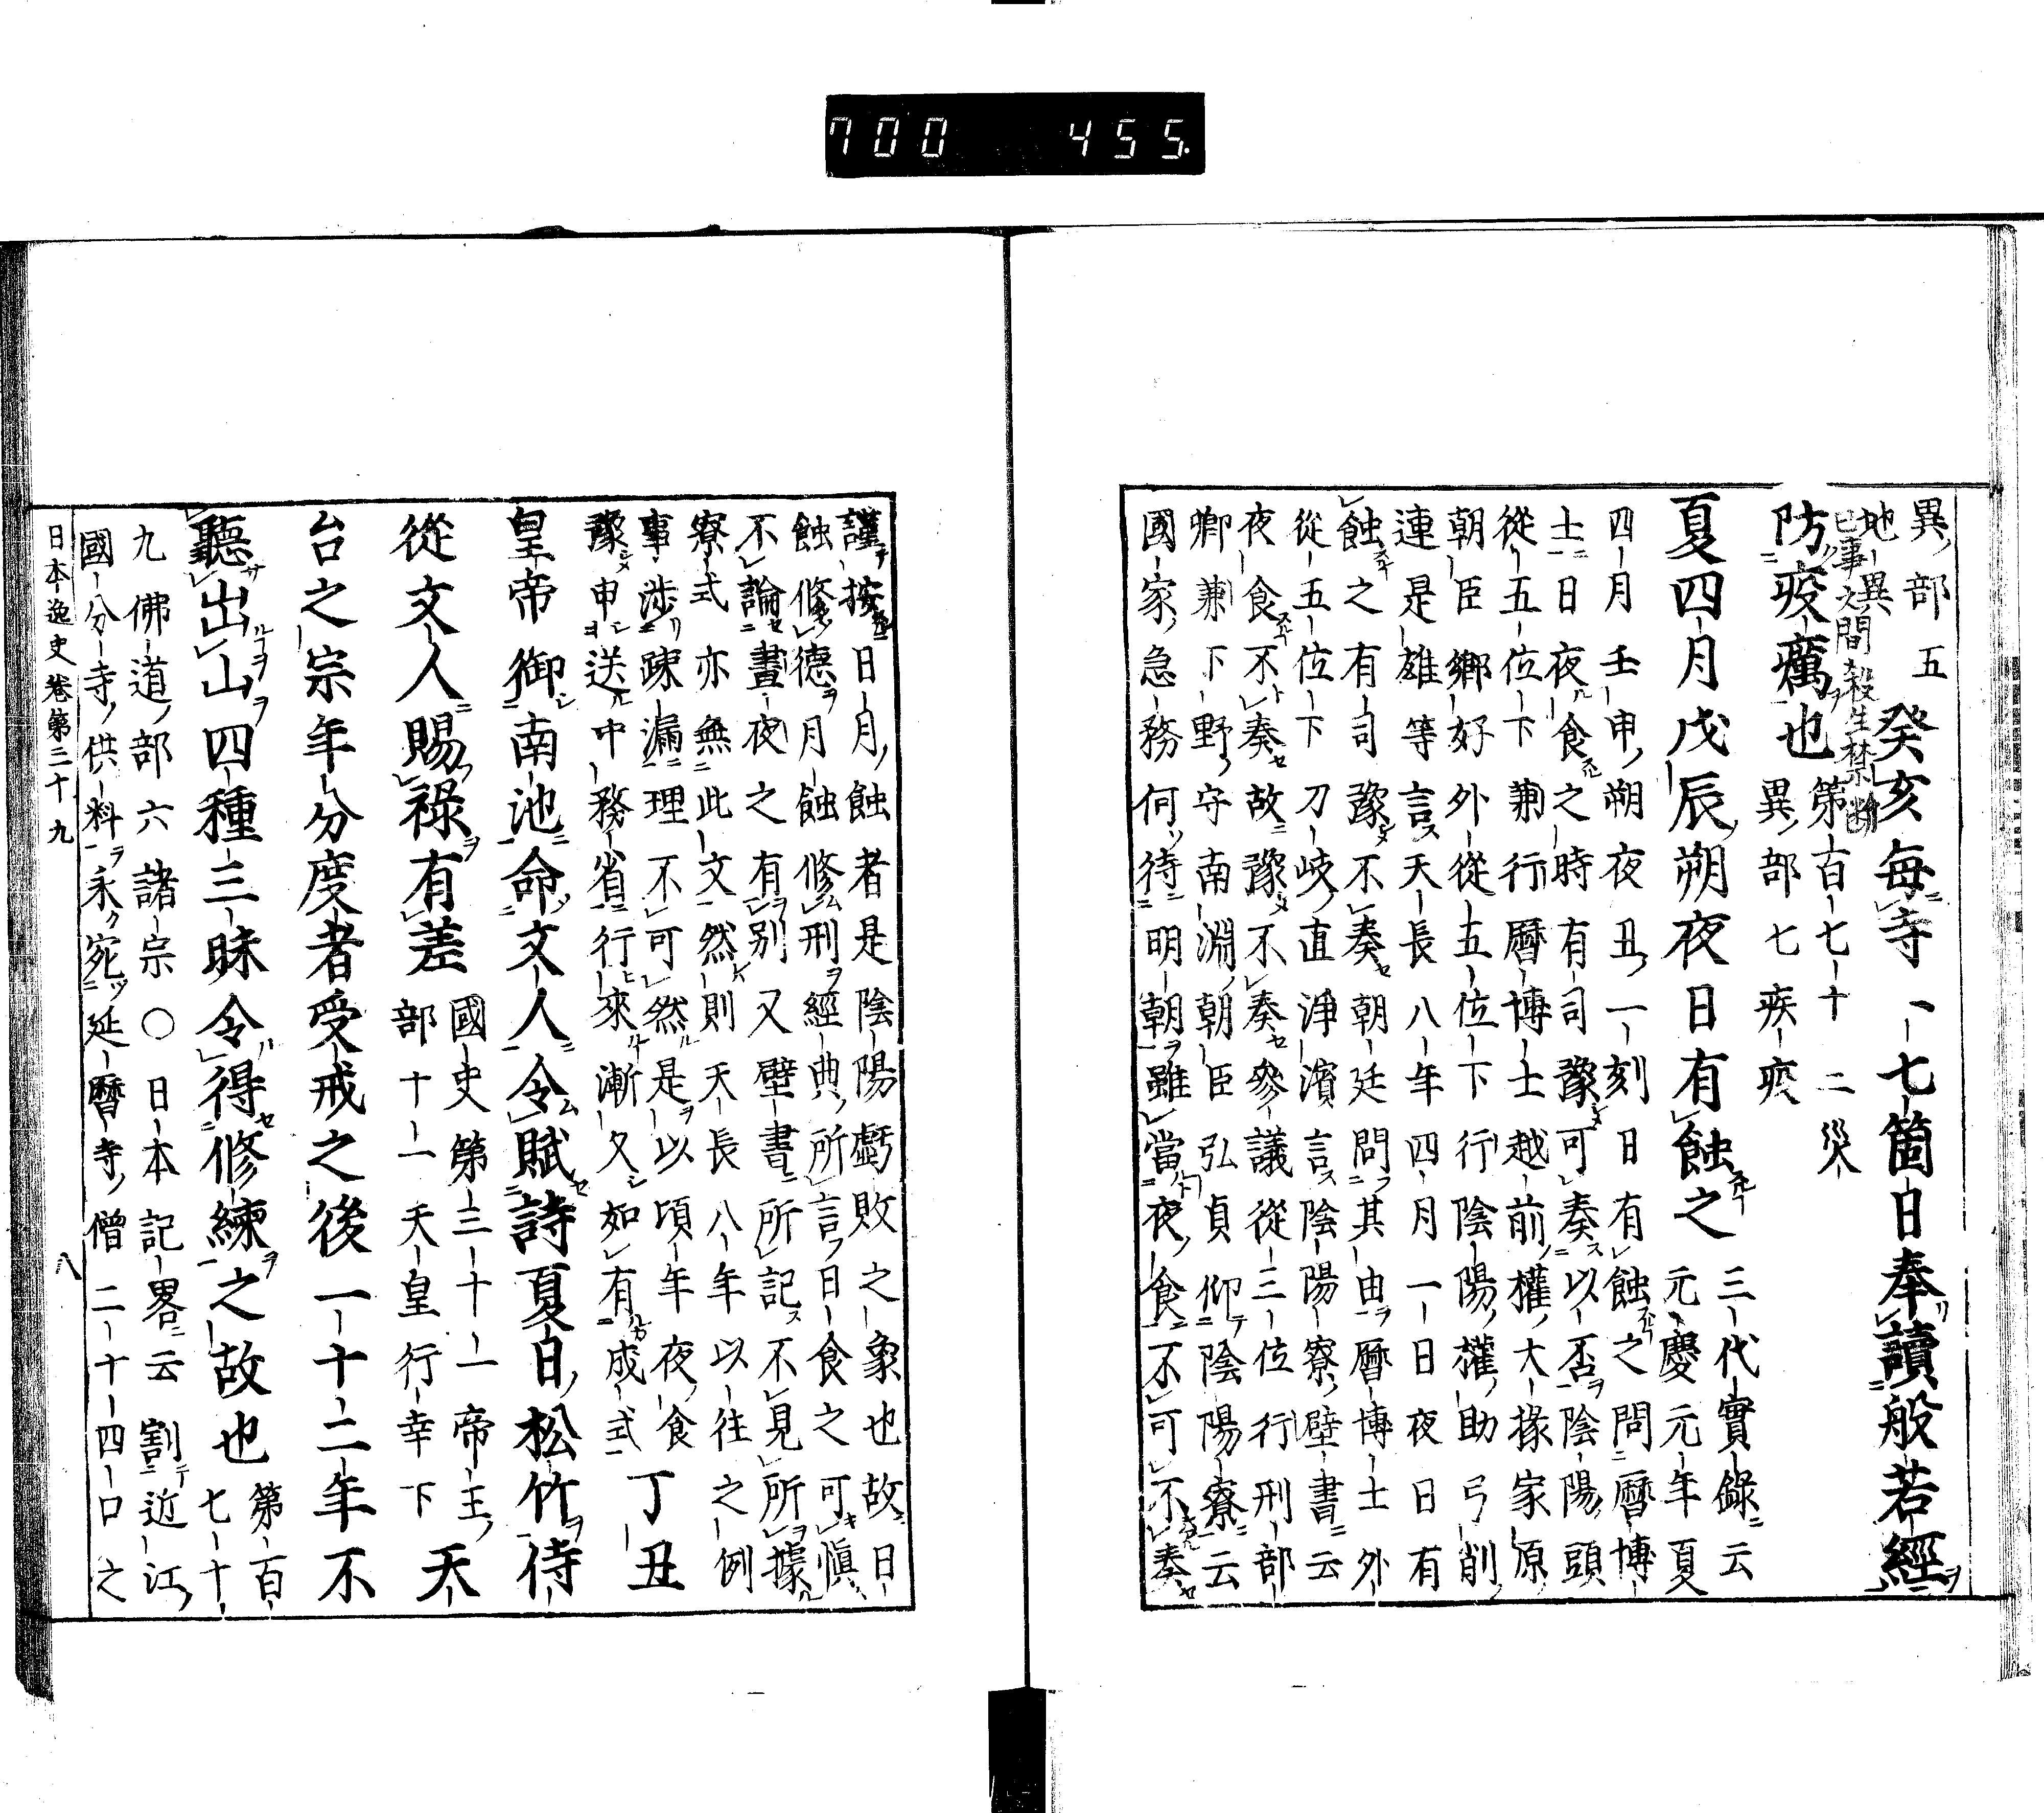 700 455
異部五
地異
癸亥每寺一七箇日奉讀般若經
已事之間殺生禁斷
防疫癘也
第百七十二災
異部七疾疫
夏四月戊辰朔夜日有蝕之
三代實錄云
元慶元年夏
四月壬申朔夜丑一刻日有蝕之問曆博
士二日夜食之時有司豫可奏以否陰陽頭
從五位下兼行曆博士越前權大掾家原
朝臣鄉好外從五位下行陰陽權助弓削
連是雄等言天長八年四月一日夜日有
蝕之有司豫不奏朝廷問其由曆博士外
從五位下刀岐直淨濱言陰陽寮壁書云
夜食不奏故豫不奏參議從三位行刑部
卿兼下野守南淵朝臣弘貞仰陰陽寮云
國家急務何待明朝雖當夜食不可不奏
謹按日月蝕者是陰陽虧敗之象也故日
蝕修德月蝕修刑經典所言日食之可愼
不論晝夜之有別又壁書所記不見所據
寮式亦無此文然則天長八年以往之例
事涉疎漏理不可然是以頃年夜食
豫申送中務省行來漸久如有成式
丁丑
皇帝御南池命文人令賦詩夏日松竹侍
從文人賜祿有差
國史第三十一帝王
部十一天皇行幸下
天
台之宗年分度者受戒之後一十二年不
聽出山四種三昧令得修練之故也
第百
七十
九佛道部六諸宗○日本記畧云割近江
國分寺供料永宛延曆寺僧二十四口之
日本逸史卷第三十九
八